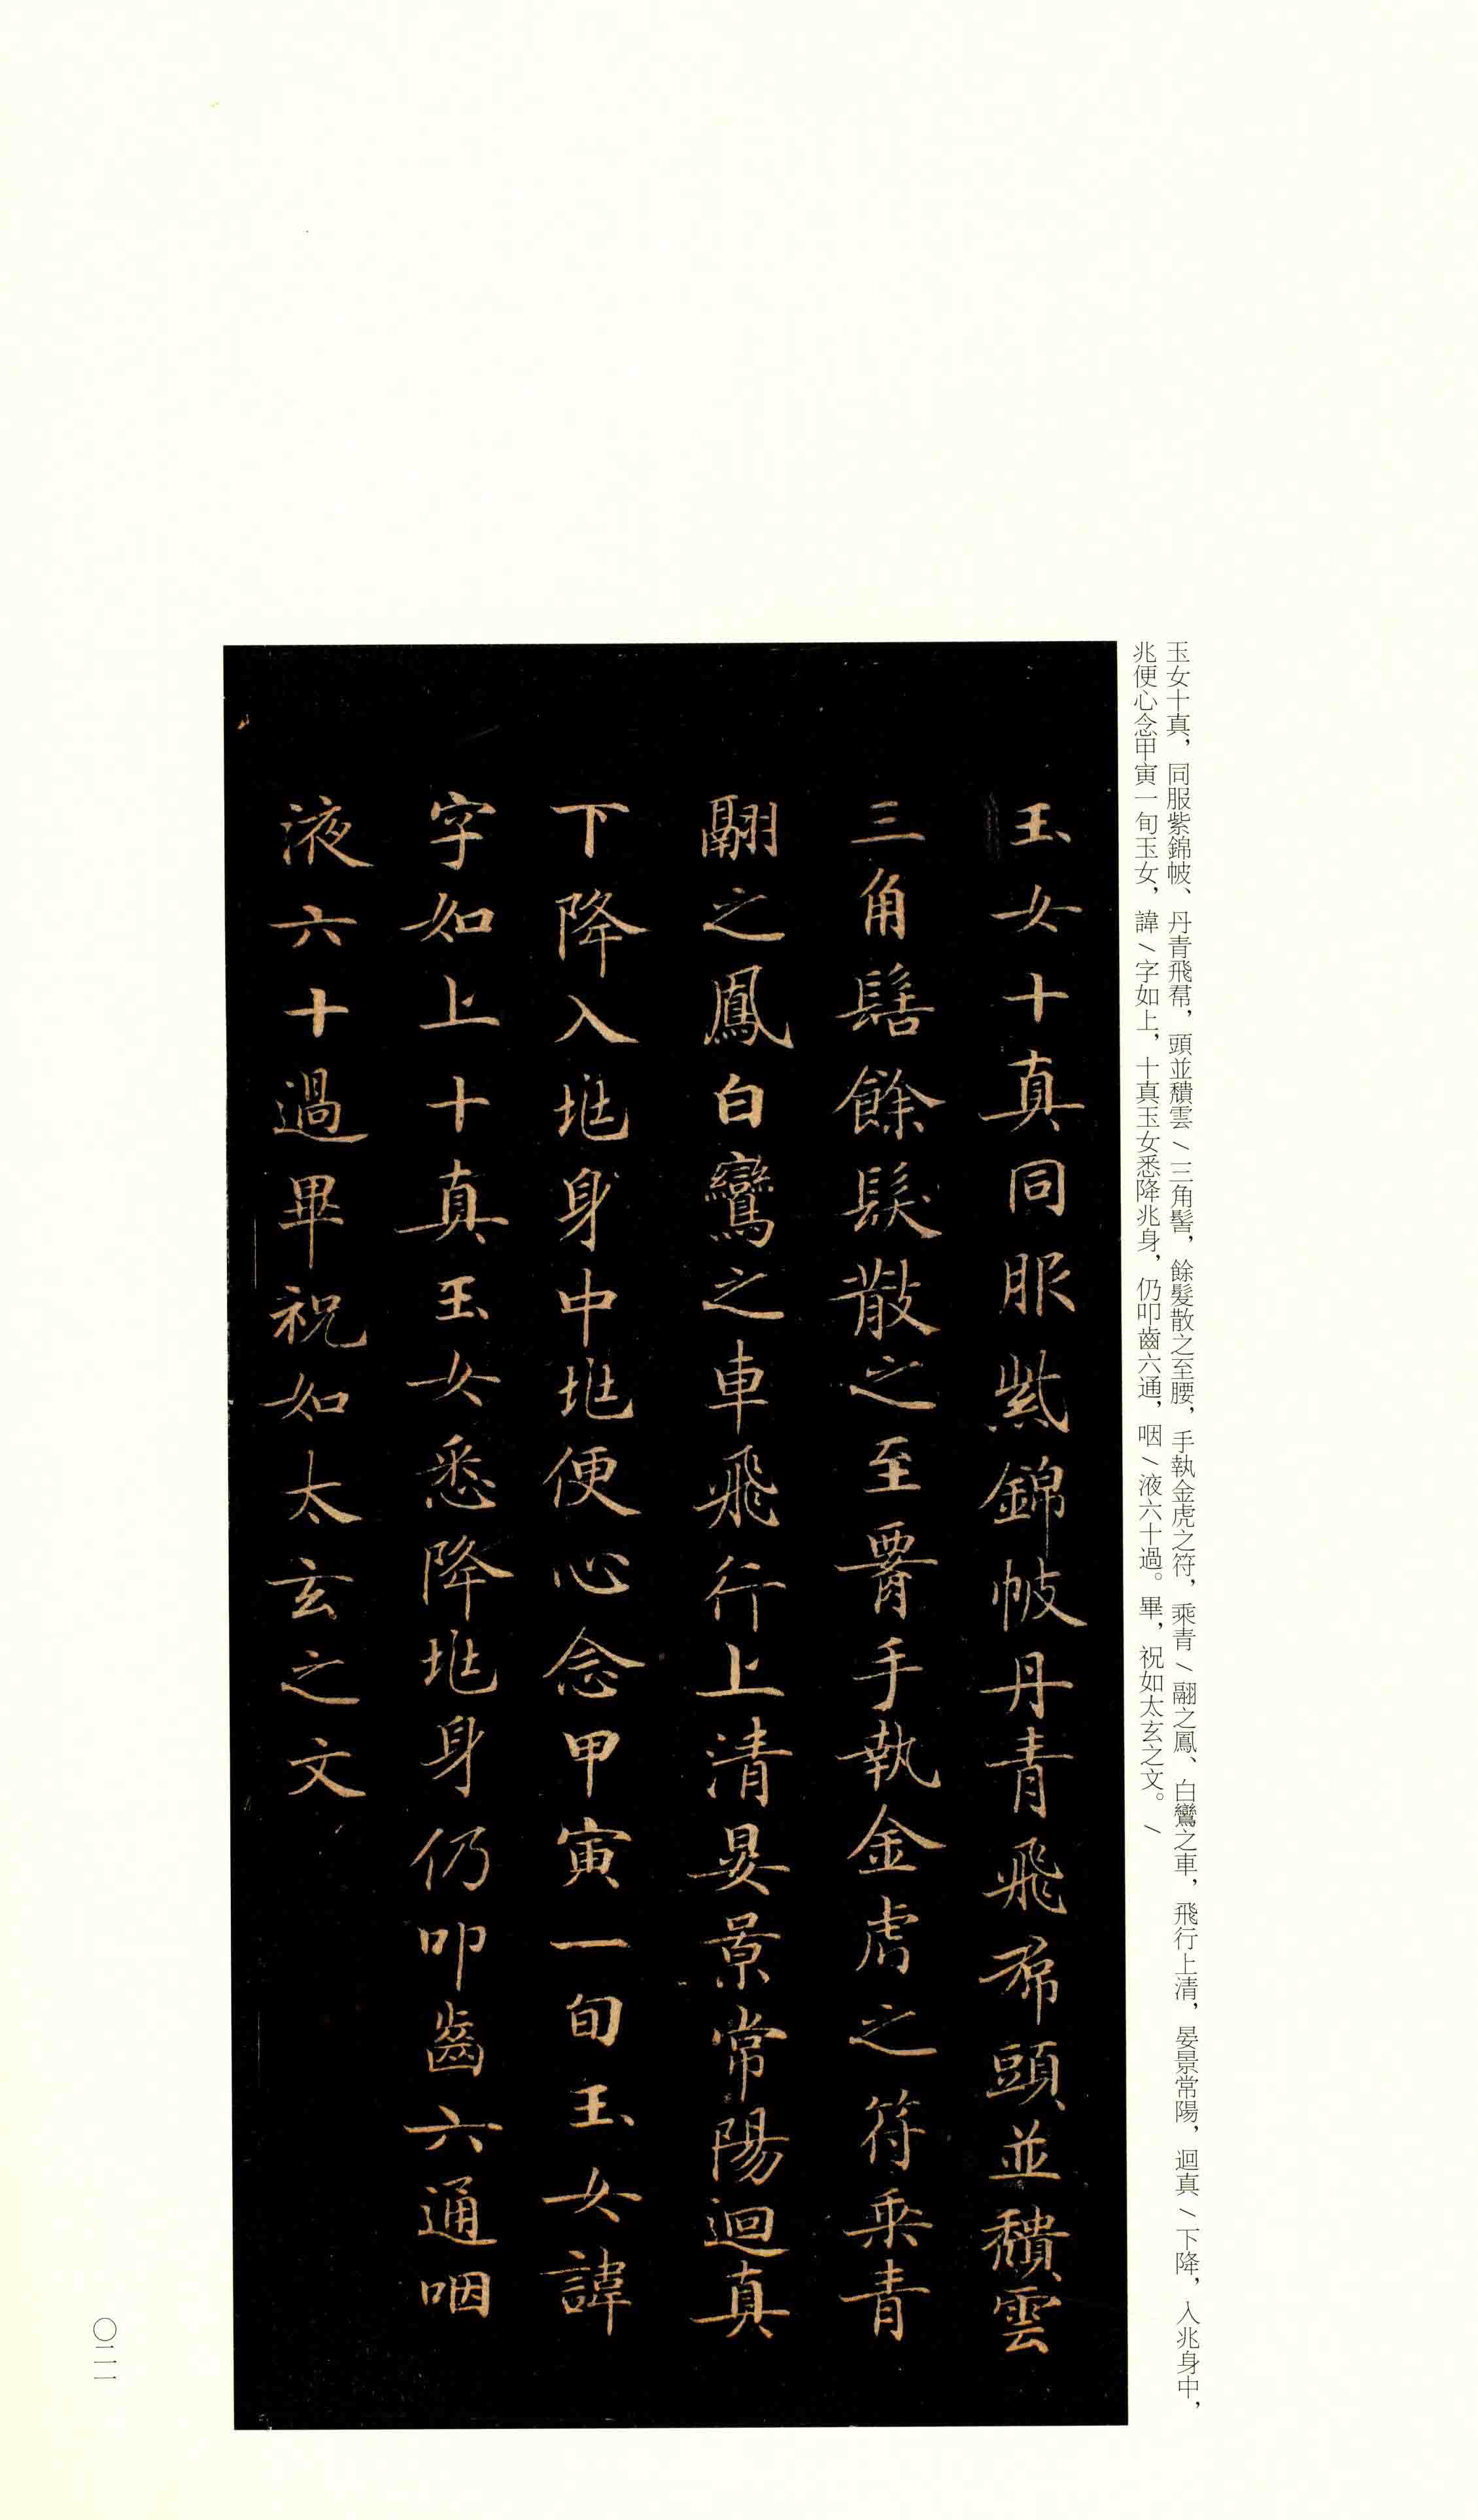 玉女十真，同服紫錦帔、丹青飛帬，頭並穨雲/三角髻，餘髮散之至腰，手執金虎之符，乘青/翮之鳳、白鸞之車，飛行上清，晏景常陽，迴真/下降，入兆身中，
兆便心念甲寅一旬玉女，諱/字如上，十真玉女悉降兆身，仍叩齒六通，咽/液六十過。畢，祝如太玄之文。/
玉女十真同服紫錦帔丹青飛帬頭並穨雲
三角髻餘髮散之至腰手執金虎之符乘青
翮之鳳白鸞之車飛行上清晏景常陽迴真
下降入兆身中兆便心念甲寅一旬玉女諱
字如上十真玉女悉降兆身仍叩齒六通咽
液六十過畢祝如太玄之文
〇二一